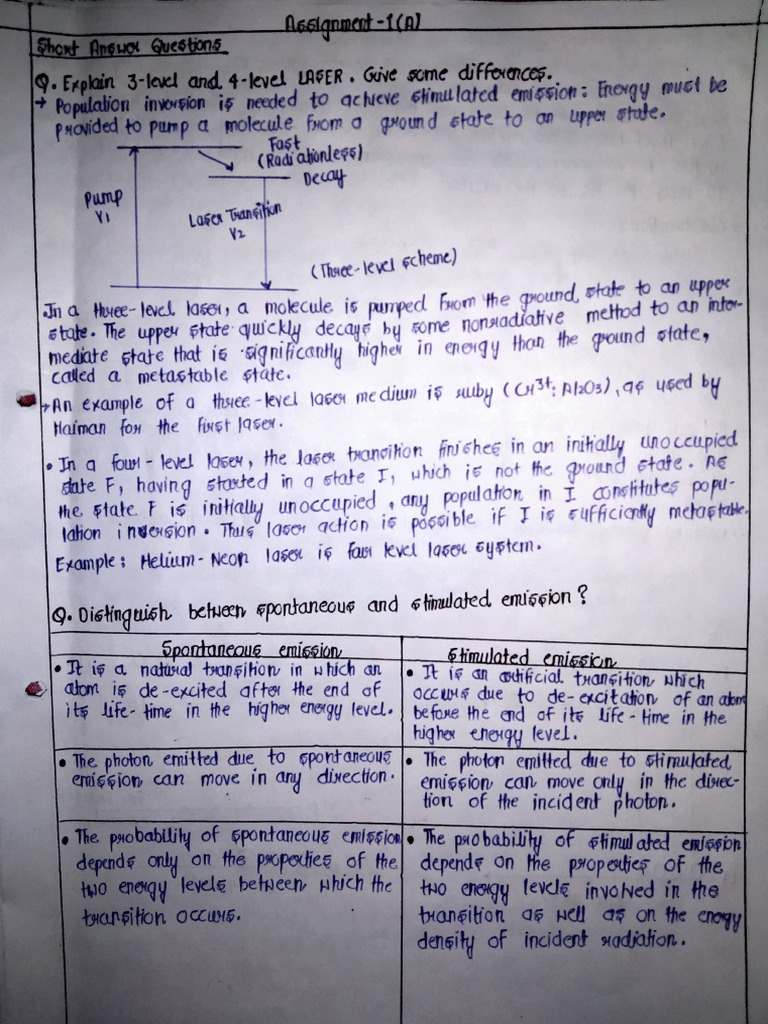 Assignment-1(A)
Short Answer Questions
Q. Explain 3-level and 4-level LASER. Give some differences.
→ Population inversion is needed to achieve stimulated emission: Energy must be
provided to pump a molecule from a ground state to an upper state.
Fast
(Radiationless)
Decay
Pump
V1
Laser Transition
V2
(Three-level scheme)
• In a three-level laser, a molecule is pumped from the ground state to an upper
state. The upper state quickly decays by some nonradiative method to an inter-
mediate state that is significantly higher in energy than the ground state,
called a metastable state.
→ An example of a three-level laser medium is ruby (Cr3+: Al2O3), as used by
Maiman for the first laser.
• In a four-level laser, the laser transition finishes in an initially unoccupied
state F, having started in a state I, which is not the ground state. As
the state F is initially unoccupied, any population in I constitutes popu-
lation inversion. Thus laser action is possible if I is sufficiently metastable.
Example: Helium-Neon laser is four level laser system.
Q. Distinguish between spontaneous and stimulated emission?
Spontaneous emission
• It is a natural transition in which an
atom is de-excited after the end of
its life-time in the higher energy level.
Stimulated emission
• It is an artificial transition which
occurs due to de-excitation of an atom
before the end of its life-time in the
higher energy level.
• The photon emitted due to spontaneous
emission can move in any direction.
• The photon emitted due to stimulated
emission can move only in the direc-
tion of the incident photon.
• The probability of spontaneous emission
depends only on the properties of the
two energy levels between which the
transition occurs.
• The probability of stimulated emission
depends on the properties of the
two energy levels involved in the
transition as well as on the energy
density of incident radiation.